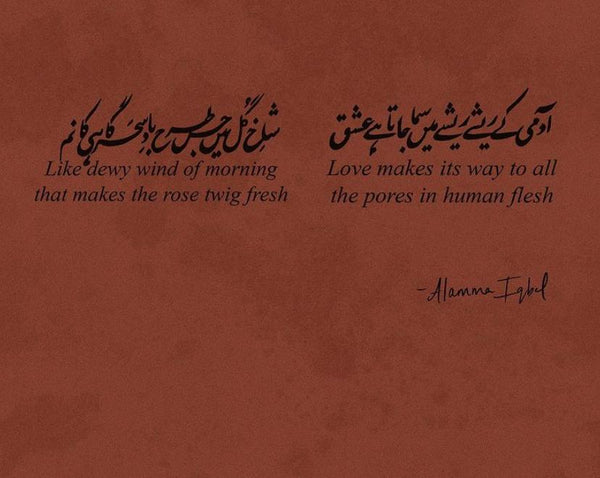 آدمی کے ریشے ریشے میں سما جاتا ہے عشق
Love makes its way to all
the pores in human flesh
شاخِ گُل میں جس طرح بادِ سحر گاہی کا نم
Like dewy wind of morning
that makes the rose twig fresh
-Alamma Iqbal